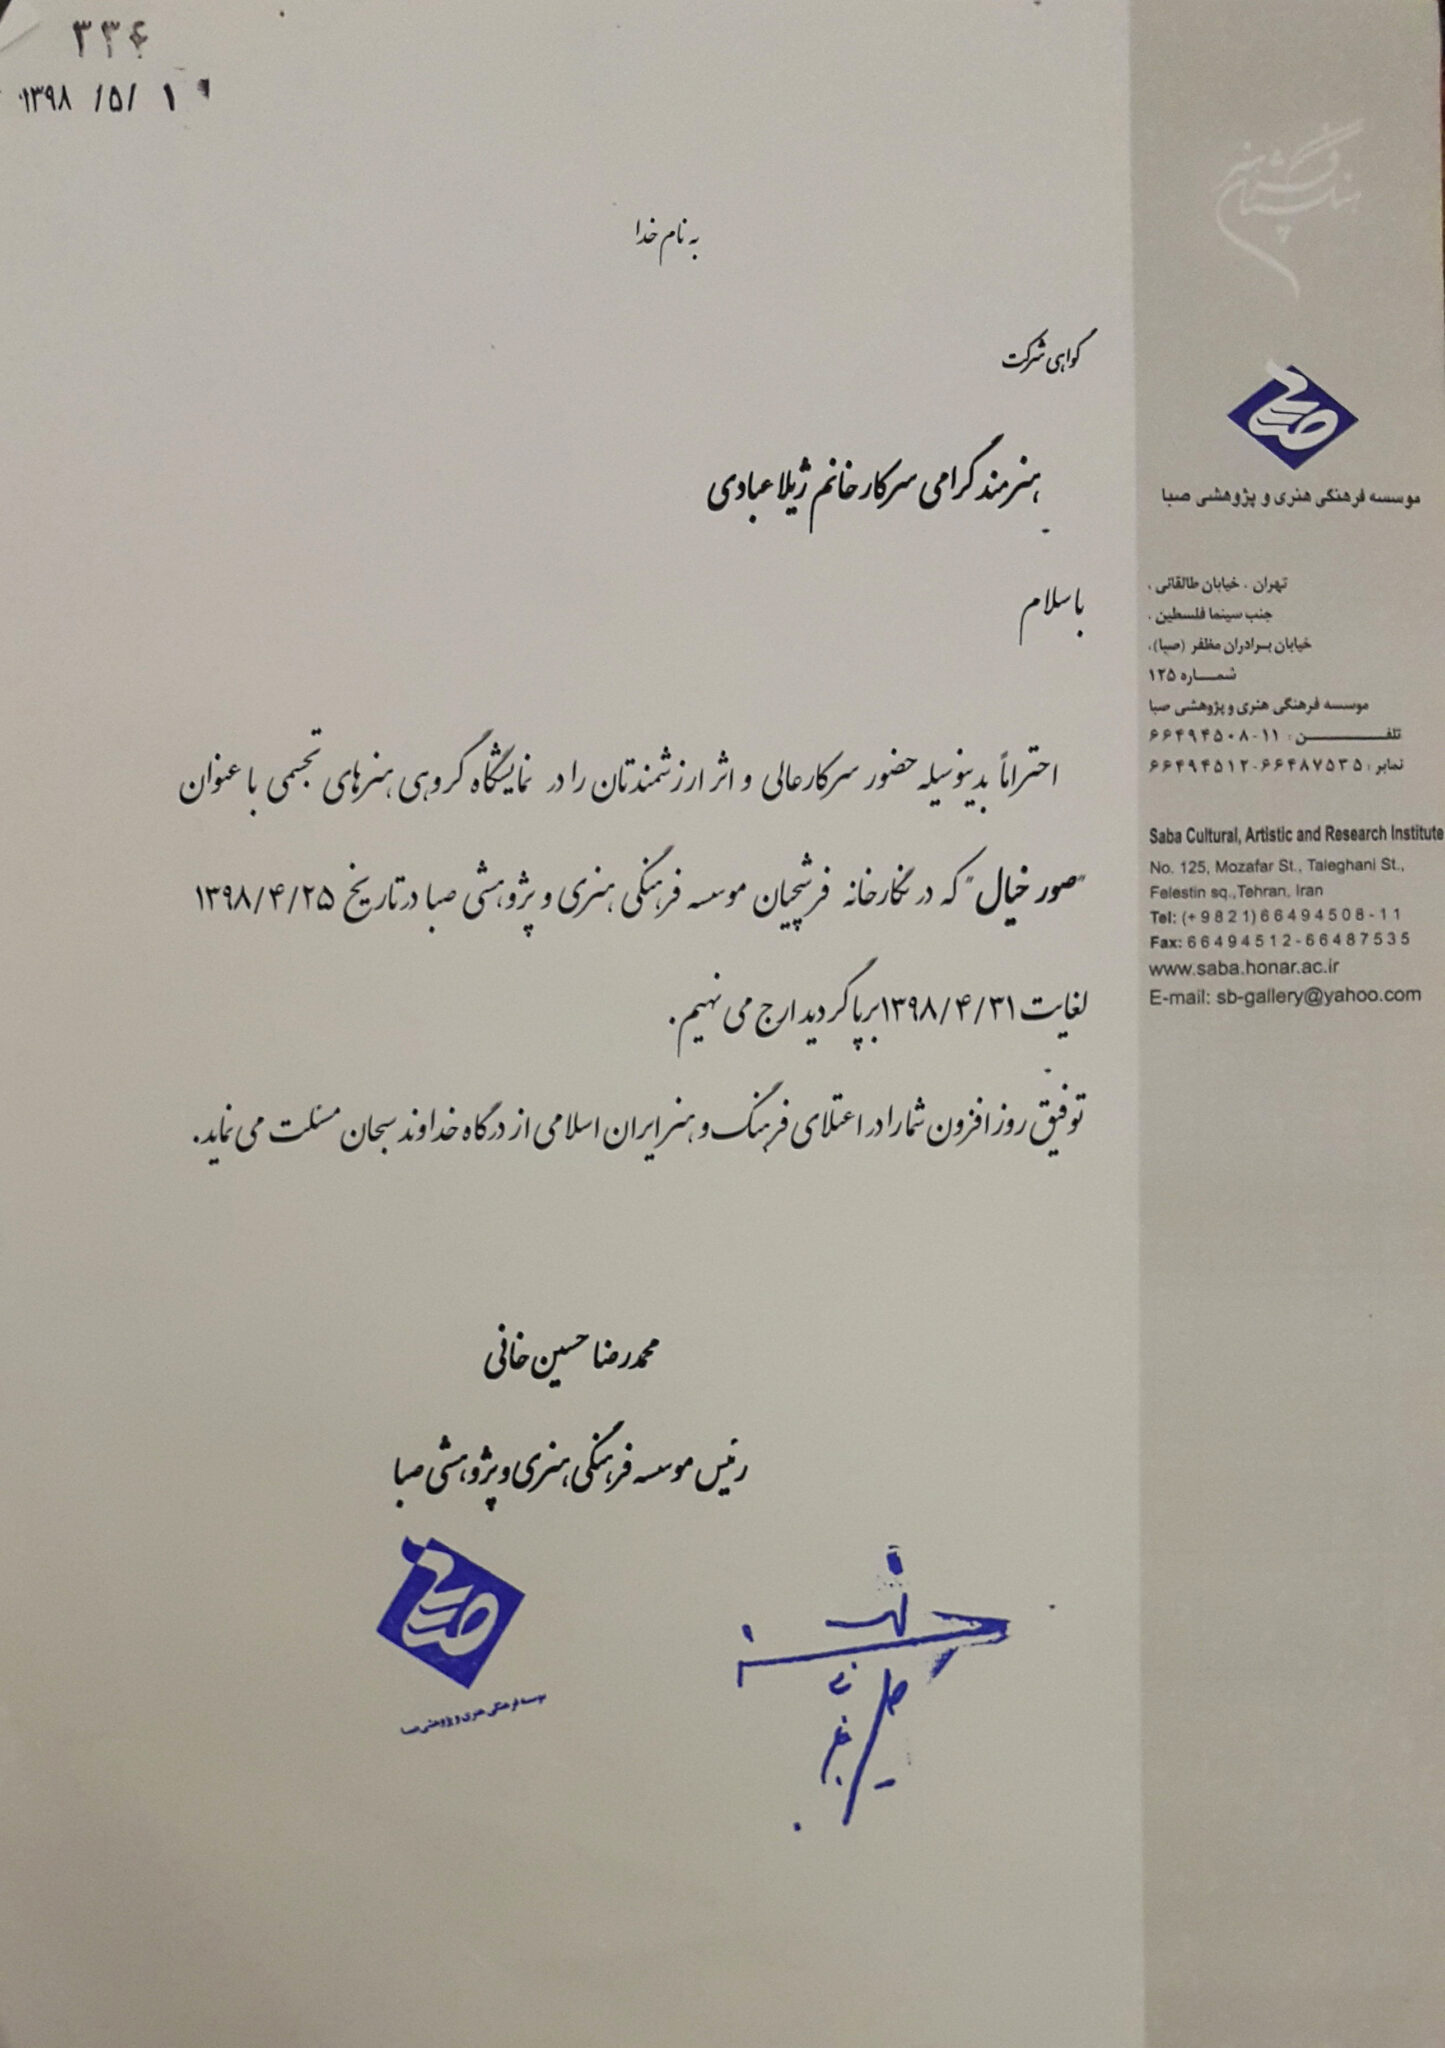 ۳۳۶
۱۳۹۸ /۵/ ۱
به نام خدا
گواهی شرکت
هنرمند گرامی سرکار خانم ژیلا عبادی
با سلام
احتراماً بدینوسیله حضور سرکارعالی و اثر ارزشمندتان را در نمایشگاه گروهی هنرهای تجسمی با عنوان
"صور خیال" که در نگارخانه فرشچیان موسسه فرهنگی هنری و پژوهشی صبا در تاریخ ۱۳۹۸/۴/۲۵
لغایت ۱۳۹۸/۴/۳۱ برپا گردید ارج می نهیم.
توفیق روز افزون شما را در اعتلای فرهنگ و هنر ایران اسلامی از درگاه خداوند سبحان مسئلت می نماید.
محمدرضا حسین خانی
رئیس موسسه فرهنگی هنری و پژوهشی صبا
صبا
موسسه فرهنگی هنری و پژوهشی صبا
فرهنگستان هنر
صبا
موسسه فرهنگی هنری و پژوهشی صبا
تهران . خیابان طالقانی .
جنب سینما فلسطین .
خیابان برادران مظفر (صبا).
شماره ۱۲۵
موسسه فرهنگی هنری و پژوهشی صبا
تلفن: ۱۱-۶۶۴۹۴۵۰۸
نمابر: ۶۶۴۸۷۵۳۵-۶۶۴۹۴۵۱۲
Saba Cultural, Artistic and Research Institute
No. 125, Mozafar St., Taleghani St.,
Felestin sq.,Tehran, Iran
Tel: (+9821)66494508-11
Fax: 66494512-66487535
www.saba.honar.ac.ir
E-mail: sb-gallery@yahoo.com